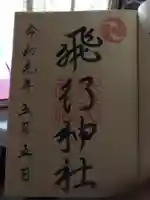 飛行神社
令和元年 五月 五日